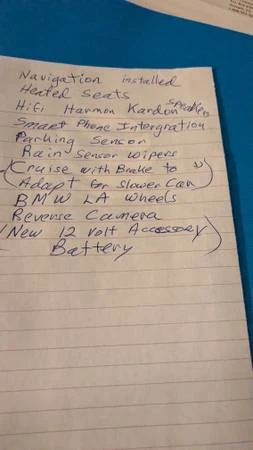 Navigation installed
Heated Seats
Hifi Harmon Kardon speakers
Smart Phone Intergration
Parking Sencor
Rain Sensor Wipers
(Cruise with Brake to
Adapt for Slower Car)
BMW LA Wheels
Reverse Camera
(New 12 volt Accessory)
Battery